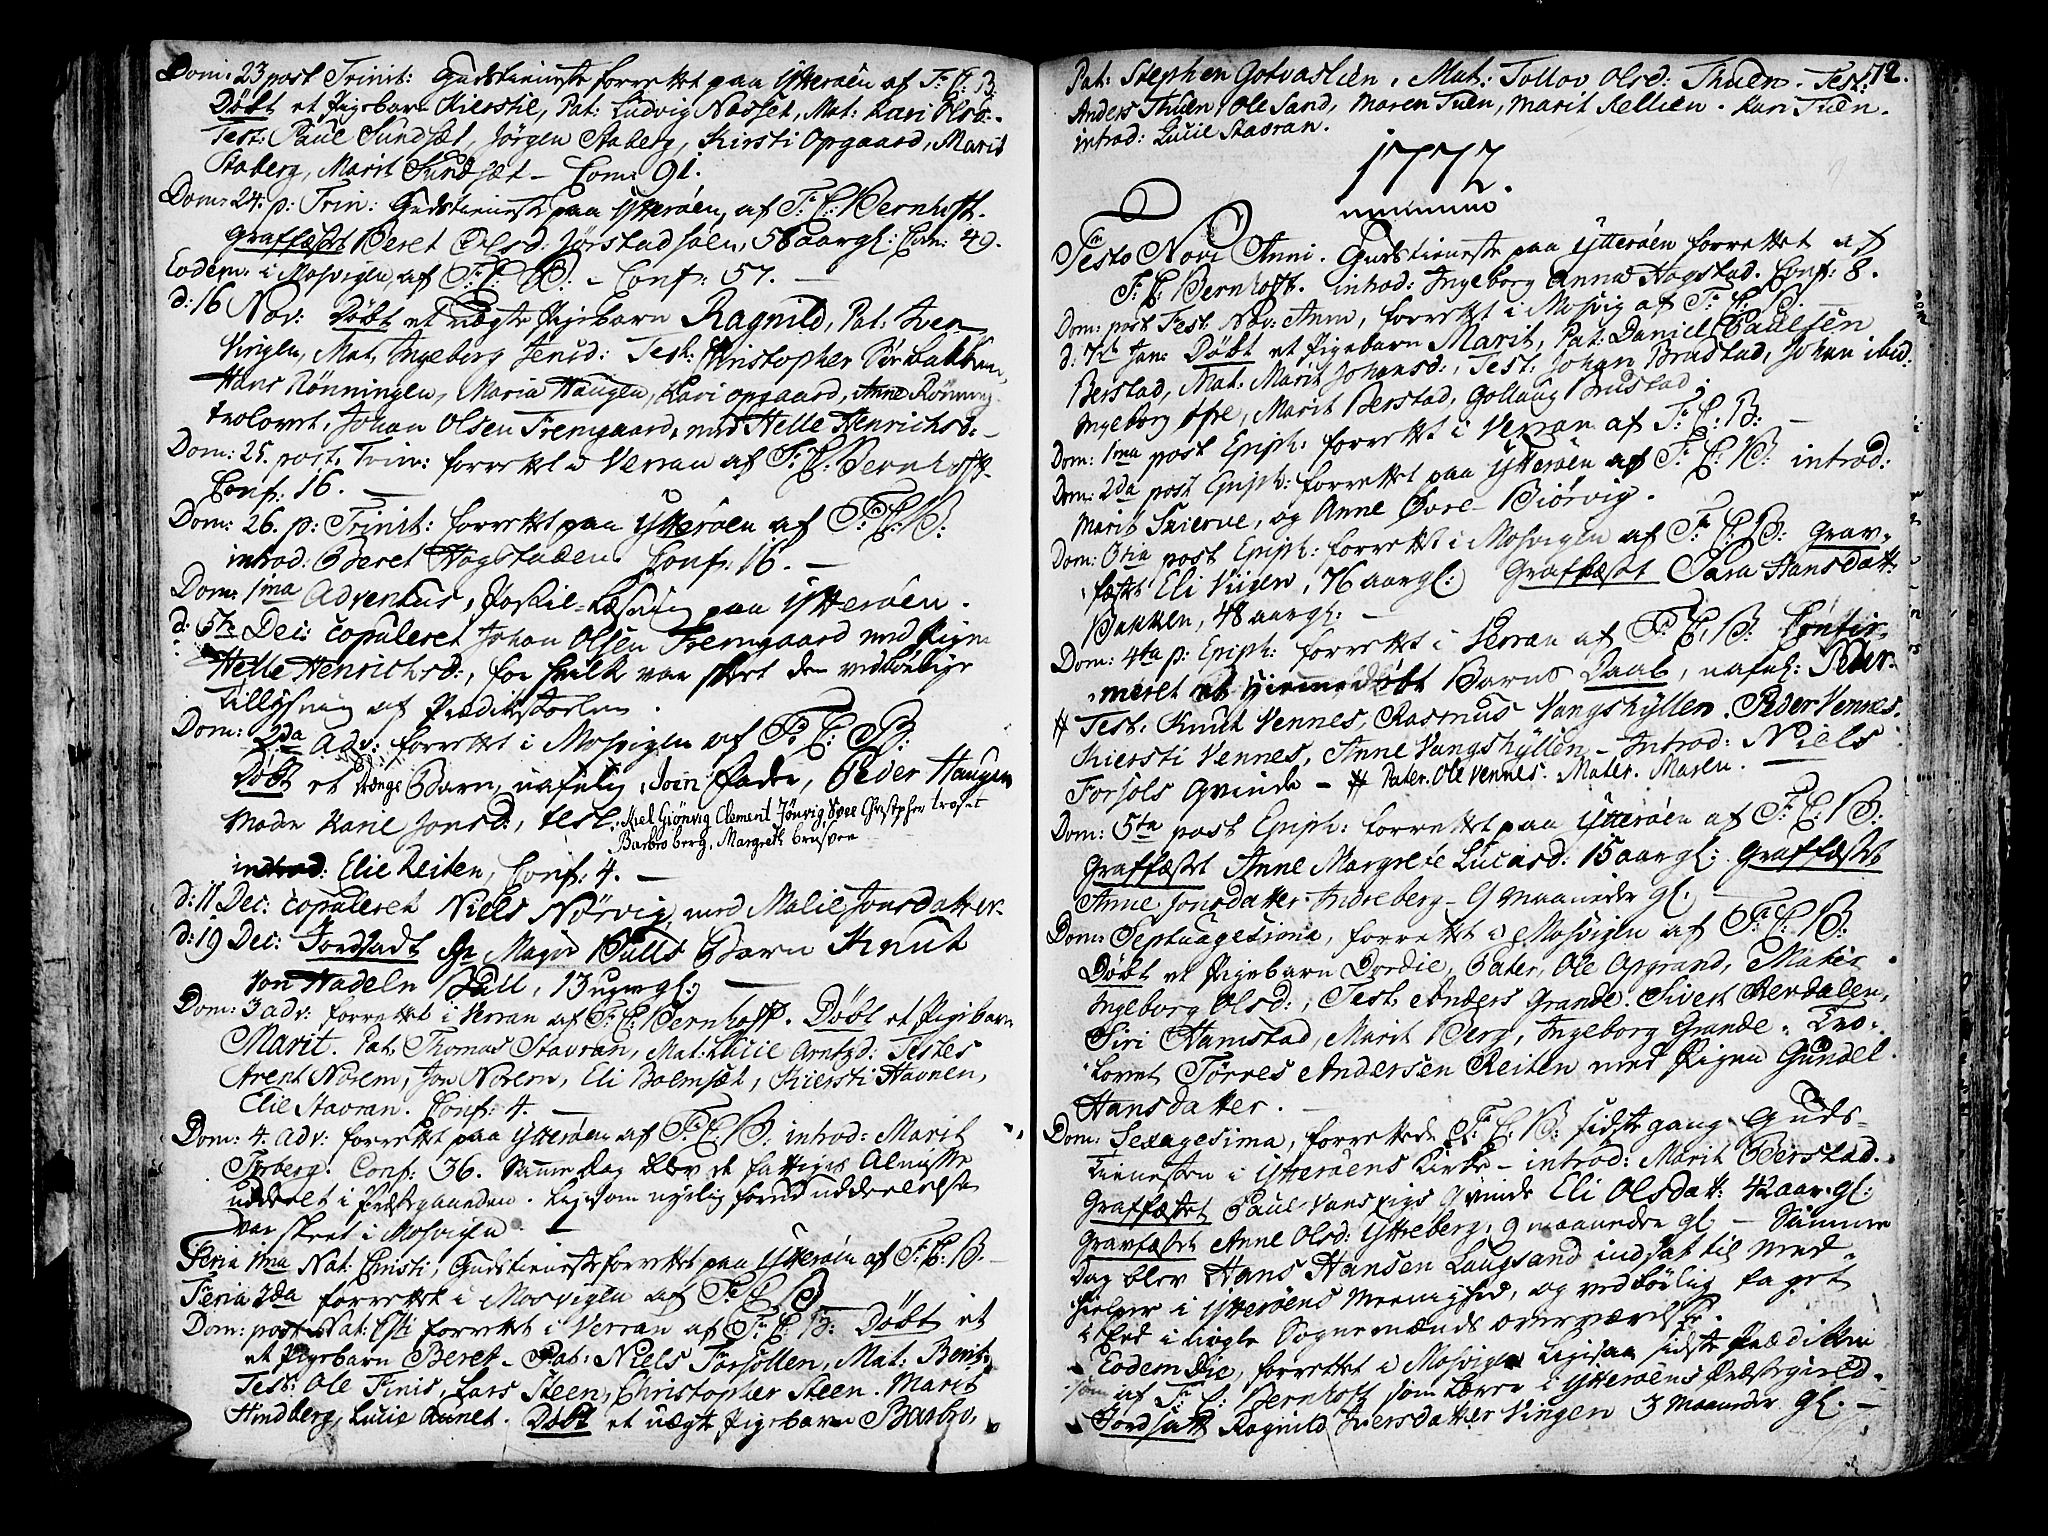 Dom: 23 post Trinit: Gudstieneste forrettet paa Ytterøen af Fr: C: B:
Døbt et Pigebarn Kierstie, Pat: Ludvig Næsset, Mat: Kari Olsd:.
Test: Paul Sundsæt, Jørgen Staberg, Kirsti Opgaard, Marit
Staberg, Marit Sundsæt – Com: 91.
Dom: 24. p: Trin: Gudstieneste paa Ytterøen, af F: C: Bernhoft.
Graffæstet Beret Olsd: Jørstad, 58 aar gl: Com: 49.
Eodem: i Mosvigen, af F: C: B: – Conf: 57. –
d: 16 Nov: Døbt et uægte Pigebarn Ragnild, Pat: Iver
Viigen, Mat, Ingeberg Jensd: Test: Christopher Sørbakken,
Hans Rønningen, Maria Haugen, Kari opgaard, Anne Rønning
trolovet, Johan Olsen Fremgaard, med Helle Henrichsd: –
Dom: 25. post. Trin: forrettet i Verran af F: C: Bernhoft.
Conf: 16. –
Dom: 26. p: Trinit: forrettet paa Ytterøen af F: C: B:
introd: Beret Hogstaden. Conf: 16. –
Dom: 1ma Adventus, Postil-Læsning paa Ytterøen.
d: 5te Dec: copuleret Johan Olsen Fremgaard med Pigen
Helle Henrichsd:, for hvilke var skeet den vedbørlige
Tillysning af Prædikestoelen.
Dom: 2da Adv: forrettet i Mosvigen af F: C: B:
Døbt et Drenge Barn, nafnlig, Join Fader, Peder Haugen
Moder Karie Jonsd:, test: Axel Grønvig Clement Jønvig Christopher troset
Barbro berg, Margrethe brusvee
introd: Elie Reiten, Conf: 4. –
d: 11 Dec: copuleret Niels Nørvig med Malie Jonsdatter.
d: 19 Dec: Jordsadt Hr Major Bulls Barn Knut
von Hadeln Bull, 13 uger gl: –
Dom: 3 adv: forrettet i Verran af F: C: Bernhoft. Døbt et Pigebarn
Marit. Pat: Thomas Stavran, Mat: Lucie Arntzd: Testes
Arent Norem, Jon Norem, Eli Bolmsæt, Kiersti Havnen,
Elie Stavran. Conf: 4. –
Dom: 4. Adv: forrettet paa Ytterøen af F: C: B: introd: Marit
Forberg. Conf: 36. Samme Dag blev de fattiges Almisse
uddeelt i Præstegaarden. Ligesom nyelig forud uddeelelse
var skeet i Mosvigen. –
Feria 1ma Nat: Christi, Gudstieneste forrettet paa Ytterøen af F: C: B: –
Feria 2da forrettet i Mosvigen af F: C: B:
Dom: post Nat: Chsti forrettet i Verran af F: C: B: Døbt et
et Pigebarn Beret – Pat: Niels Forsollen, Mat: Berit:
Test: Ole Finis, Lars Steen, Christopher Steen. Marit
Hindberg, Lucie Aunet. Døbt et uægte Pigebarn Barbro,
72.
Pat: Stephen Gotvaslien, Mat: Tollov Olsd: Thuen. Test:
Anders Thuen, Ole Sand, Maren Tuen, Marit Kellien. Kari Tuen.
introd: Lucie Stavran.
1772.
Festo Novi Anni. Gudstieneste paa Ytterøen forrettet af
F: C: Bernhoft. introd: Ingeborg Anna Hogstad. Conf: 8.
Dom: post Fest. Nov: Anni, forrettet i Mosvig af F: C: B: –
d: 7de Jan: Døbt et Pigebarn Marit, Pat: Daniel Paulsen
Berstad, Mat: Marit Johansd:, Test: Johan Brustad, Johan ibid:
Ingeborg øfre, Marit Berstad, Gollaug Brustad.
Dom: 1ma post Epiph: forrettet i Verran af F: C: B: –
Dom: 2da post Epiph: forrettet paa Ytterøen af F: C: B: introd:
Marit Skierve, og Anne Øvre Biørvig.
Dom: 3tia post Epiph: forrettet i Mosvigen af F: C: B: Grav-
fæstet Eli Viigen, 76 aar gl:) Graffæstet Sara Hansdatt:
Bakken, 48 aar gl: –
Dom: 4ta p: Epiph: forrettet i Verran af F: C: B: Confir-
meret et hiemmedøbt Barns Daab, nafnl: Peder.
# Test: Knut Vennes, Rasmus Vangshyllen. Peder Vennes.
Kiersti Vennes, Anne Vangshyllen – Introd: Niels
Forsols Qvinde – # Pater. Ole Vennes. Mater. Maren. –
Dom: 5ta post Epiph: forrettet paa Ytterøen af F: C: B:
Graffæstet Anne Margrete Lucasd: 15 aar gl: Graffæstet
Anne Jonsdatter Indreberg – 9 maaneder gl: –
Dom: Septuagesima, forrettet i Mosvigen af F: C: B:
Døbt et Pigebarn Dordie, Pater, Ole Opgrand, Mater
Ingeborg Olsd:, Test: Anders Grande. Sivert Rendalen,
Siri Hamstad, Marit Berg, Ingeborg Grande. Tro-
lovet Torres Andersen Reiten med Pigen Gundel
Hansdatter. –
Dom: Sexagesima, forrettede F: C: B: sidste gang Guds-
tienesten i Ytterøens Kirke – introd: Marit Berstad.
Graffæstet Paul Vansvigs Qvinde Eli Olsdatt: 42 aar gl:
Gravfæstet Anne Olsd: Ytreberg, 9 maaneder gl – Samme
Dag blev Hans Hansen Laugsand indsat til Med-
hielper i Ytterøens Meenighed, og vedbørlig taget
i Eed i nogle Sognemænds overværelse.
Eodem Die, forrettet i Mosvigen ligesaa sidste Prædiken
af F: C: Bernhoft som Lærer i Ytterøens Præstegield.
Jordsatt Ragnild Iversdatter Vingen 3 Maaneder gl. –